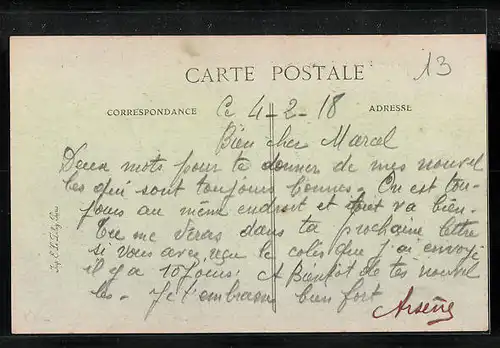 13
CARTE POSTALE
CORRESPONDANCE
Ce 4-2-18
ADRESSE
Bien cher Marcel
Deux mots pour te donner de mes nouvel
les qui sont toujours bonnes. On est tou-
jours au même endroit et tout va bien.
Tu me diras dans ta prochaine lettre
si vous avez reçu le colis que j'ai envoyé
il y a 10 jours. A Bientot de tes nouvel
les. Je t'embrasse bien fort
Arsène